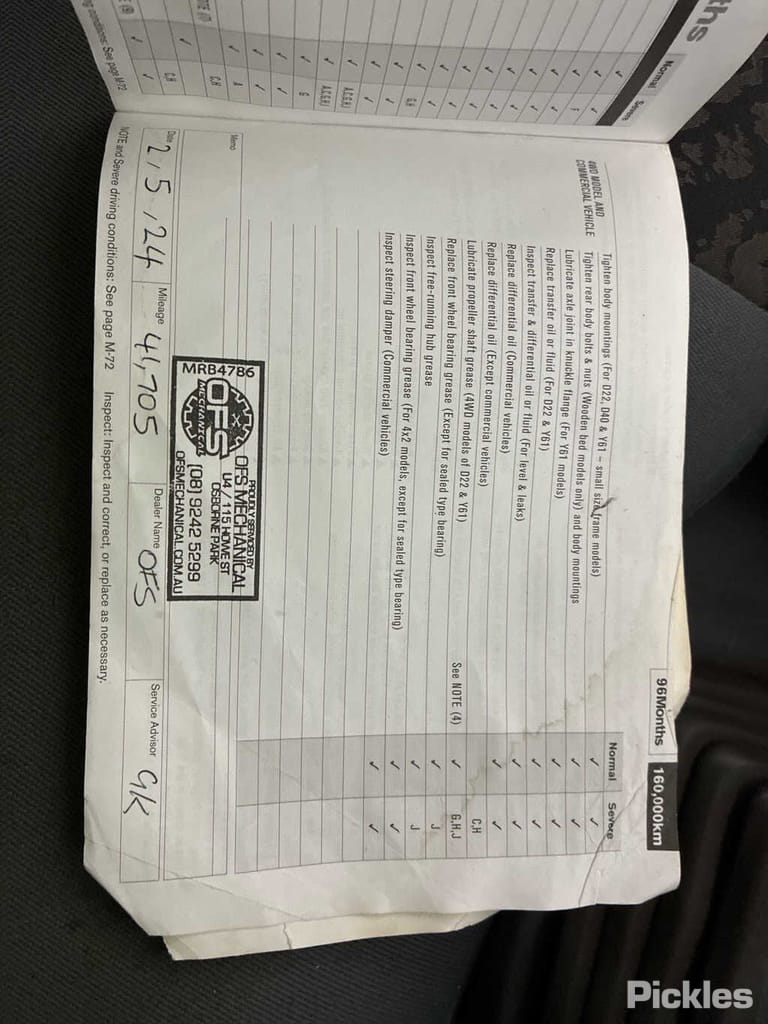 ths
Normal
Severe
F
G,H
A,C,G,H,I
A,C,G,H,I
G
A
C,H
C,H
ng conditions: See page M-72
96Months 160,000km
Normal Severe
4WD MODEL AND
COMMERCIAL VEHICLE
Tighten body mountings (For D22, D40 & Y61 – small size frame models) ✓ ✓
Tighten rear body bolts & nuts (Wooden bed models only) and body mountings ✓ ✓
Lubricate axle joint in knuckle flange (For Y61 models) ✓ ✓
Replace transfer oil or fluid (For D22 & Y61) ✓ ✓
Inspect transfer & differential oil or fluid (For level & leaks) ✓ ✓
Replace differential oil (Commercial vehicles) ✓ ✓
Replace differential oil (Except commercial vehicles) C,H
Lubricate propeller shaft grease (4WD models of D22 & Y61) See NOTE (4) ✓ G,H,J
Replace front wheel bearing grease (Except for sealed type bearing) ✓ J
Inspect free-running hub grease ✓ J
Inspect front wheel bearing grease (For 4x2 models, except for sealed type bearing) ✓ ✓
Inspect steering damper (Commercial vehicles) ✓ ✓
Memo
MRB4786
OFS
MECHANICAL
PROUDLY SERVICED BY
OFS MECHANICAL
U4 / 115 HOWE ST
OSBORNE PARK
(08) 9242 5299
OFSMECHANICAL.COM.AU
Date 2,5,24 Mileage 41,705 Dealer Name OFS Service Advisor GK
NOTE and Severe driving conditions: See page M-72 Inspect: Inspect and correct, or replace as necessary.
Pickles